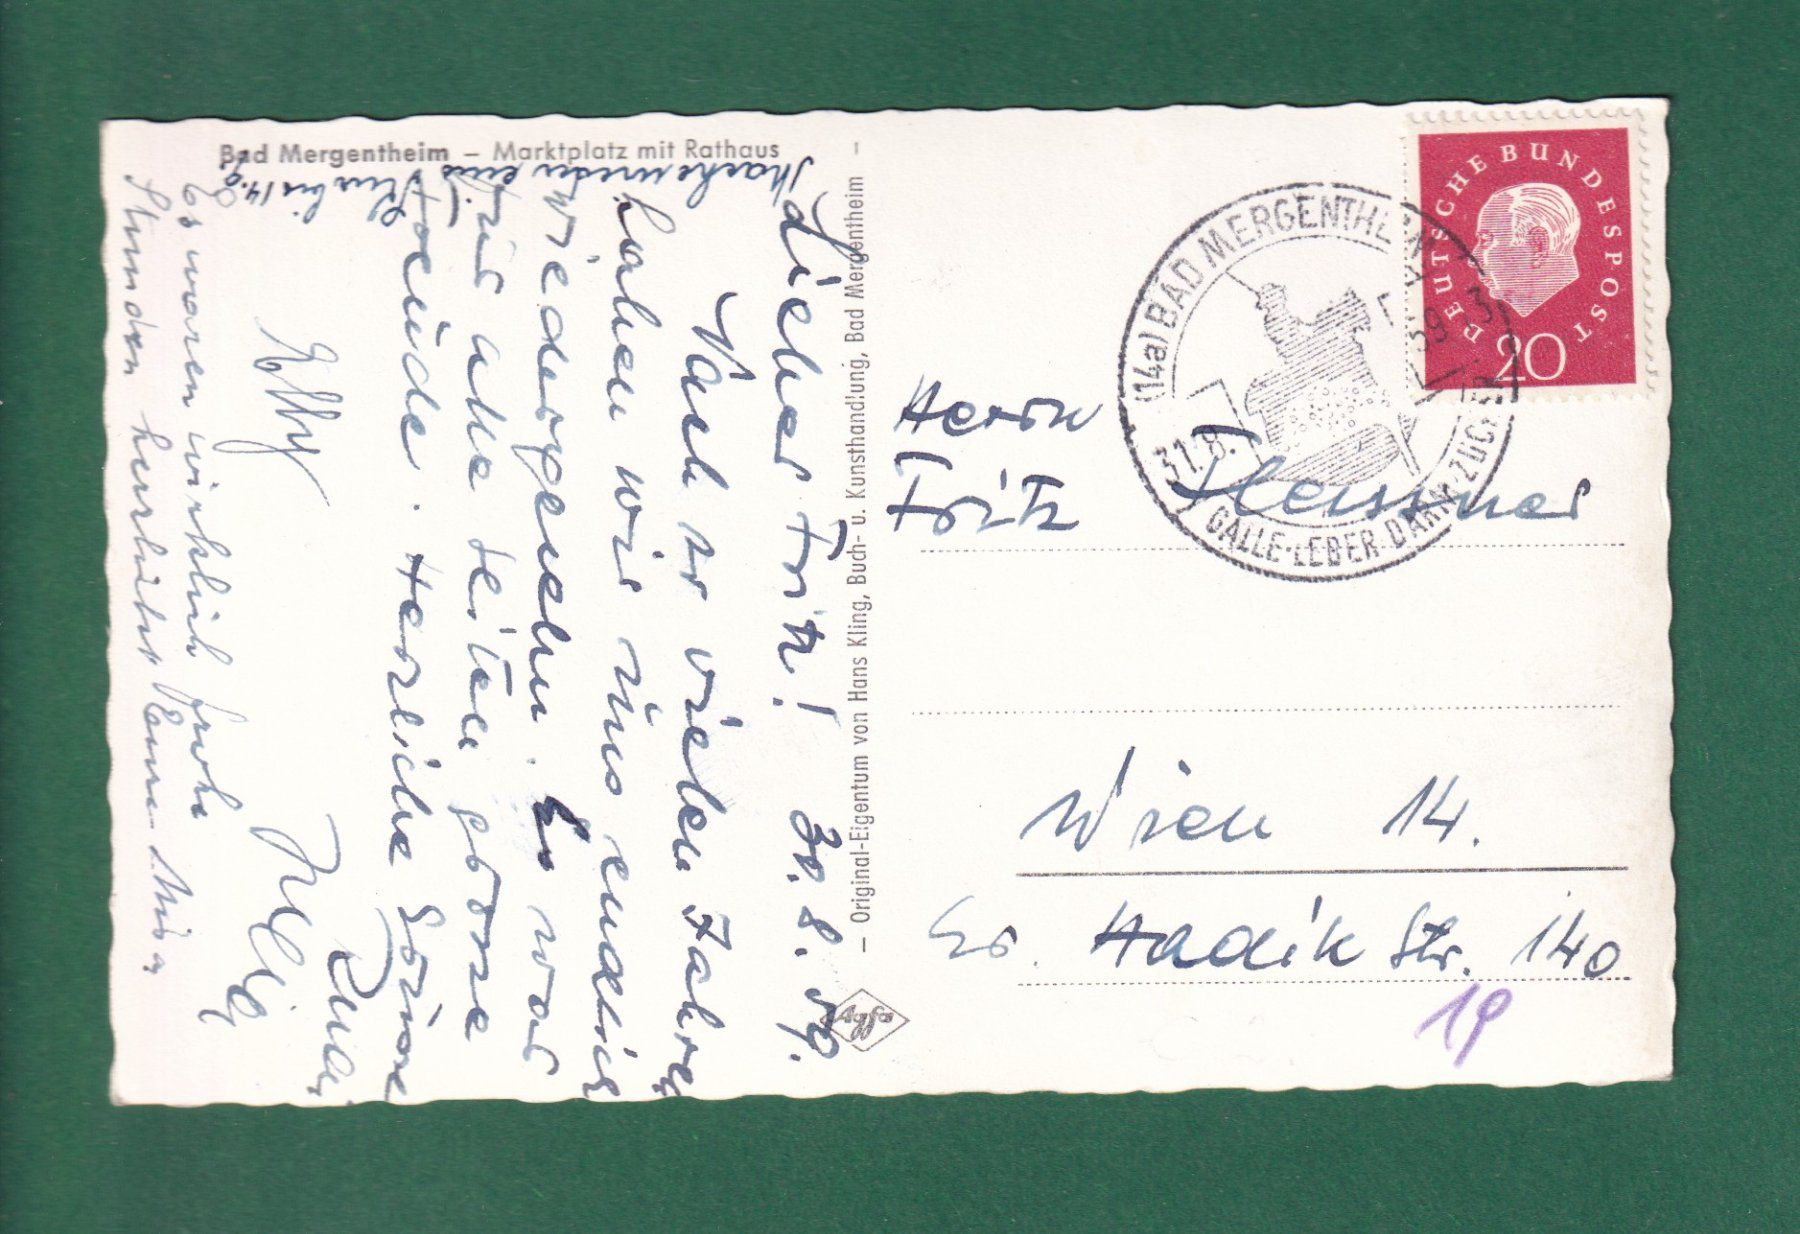 Bad Mergentheim – Marktplatz mit Rathaus
wieder eine Kur bis 14.9.
Lieber Fritz! 30.8.59.
Nach so vielen Jahren
haben wir uns endlich
wiedergesehen. Es war
für alle Teile große
Freude. Herzliche Grüsse
Es waren wirklich frohe
Stunden herzlichst
– Original-Eigentum von Hans Kling, Buch- u. Kunsthandlung, Bad Mergentheim
Agfa
DEUTSCHE BUNDESPOST
20
(14a) BAD MERGENTHEIM
31.8.
59
GALLE-LEBER-DARM-ZUCKER
Herrn
Fritz
Wien 14.
Hadik Str. 140
19